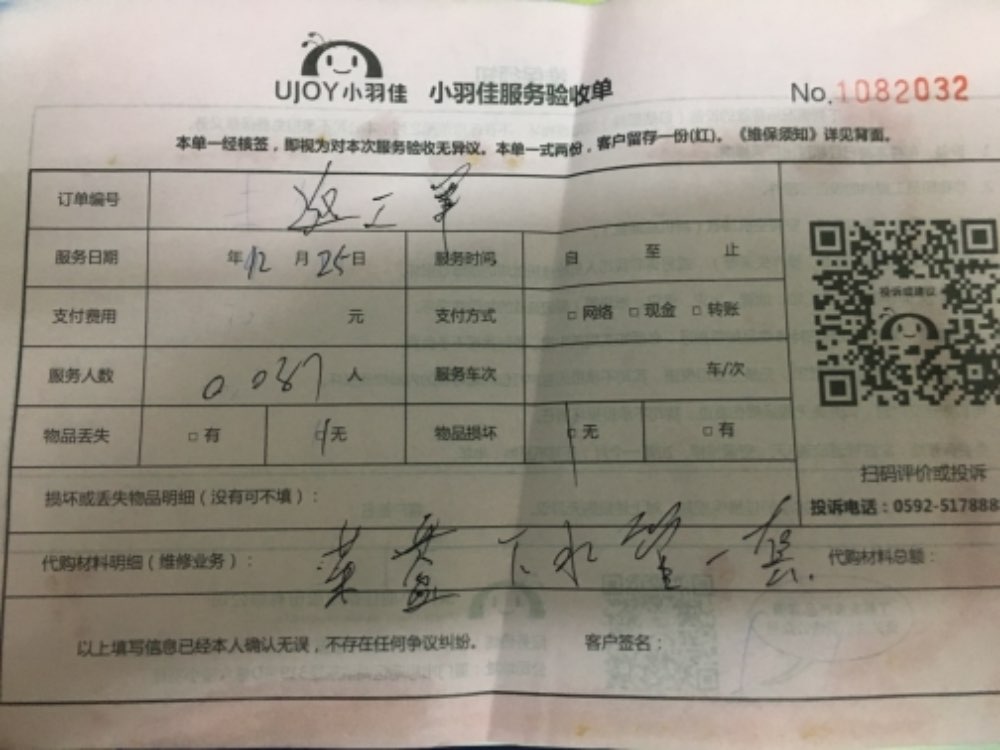 UJOY小羽佳 小羽佳服务验收单 No.1082032
本单一经核签，即视为对本次服务验收无异议。本单一式两份，客户留存一份(红)。《维保须知》详见背面。
订单编号 工单
服务日期 年12月25日 服务时间 自 至 止
支付费用 元 支付方式 □网络 □现金 □转账
服务人数 0.087 人 服务车次 车/次
物品丢失 □有 □无 物品损坏 □无 □有
投诉或建议
扫码评价或投诉
投诉电话：0592-517888
损坏或丢失物品明细（没有可不填）：
代购材料明细（维修业务）： 菜盆下水管一套. 代购材料总额：
以上填写信息已经本人确认无误，不存在任何争议纠纷。 客户签名：